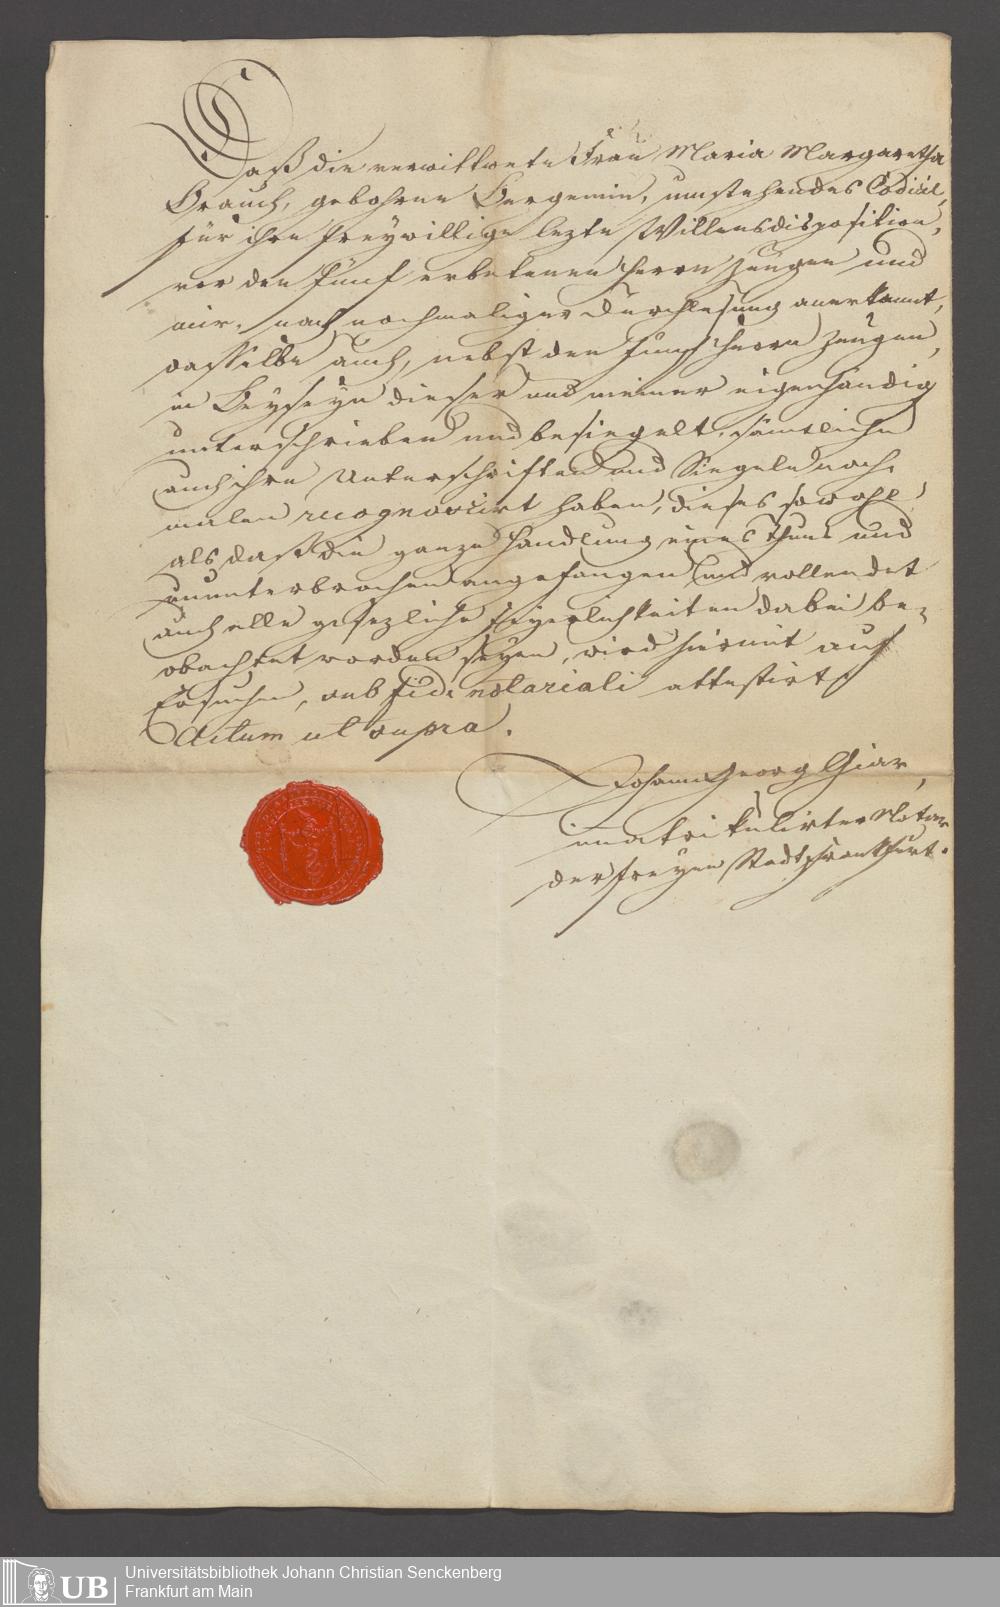 Daß die verwittwete Frau Maria Margaretha
Brauch, gebohrne Bergemin, umstehendes Codicil,
für ihre freywillige lezte Willensdisposition,
vor den fünf erbetenen Herrn Zeugen und
mir, nach nochmaliger Durchlesung anerkannt,
dasselbe auch, nebst den fünf Herrn Zeugen,
in Beyseyn dieser und meiner eigenhändig
unterschrieben und besiegelt, sämtliche
auch ihre Unterschriften und Siegel noch-
malen recognoscirt haben, dieses sowohl
als daß die ganze Handlung eines Thuns und
ununterbrochen angefangen und vollendet
auch alle gesezliche Feyerlichkeiten dabei be-
obachtet worden seyen, wird hiermit auf
Ersuchen, sub fide notariali attestirt.
Actum ut supra.
Johann Georg Giar,
imatrikulirter Notar
der freyen Stadt Frankfurt.
UB
Universitätsbibliothek Johann Christian Senckenberg
Frankfurt am Main